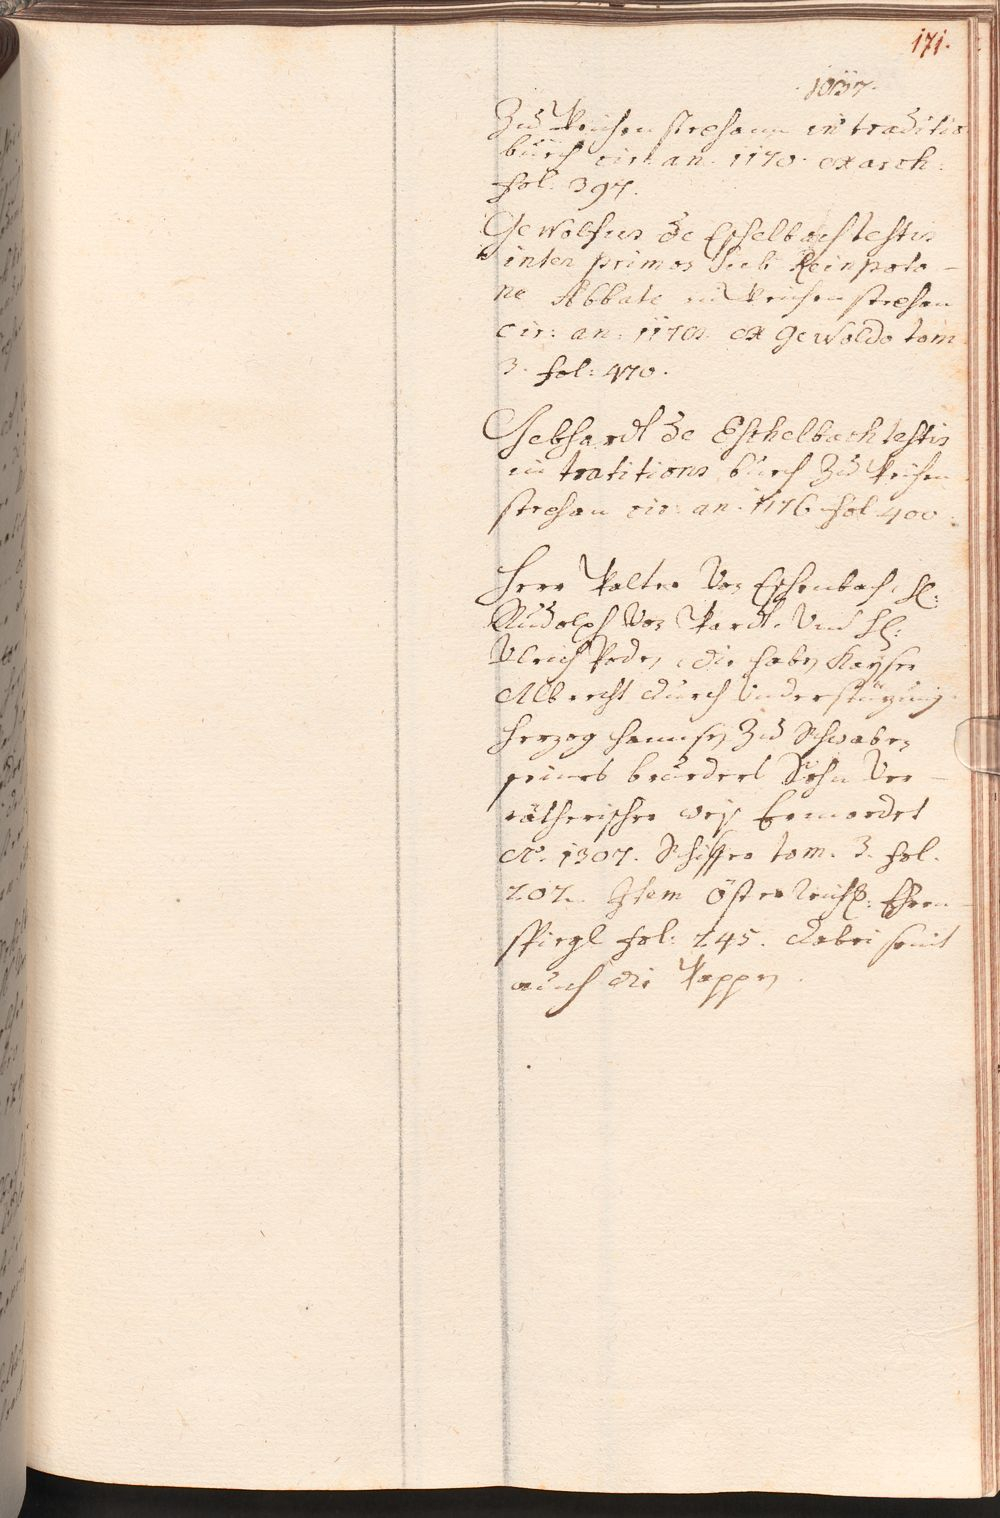 171.
1037.
Zu Weichenstephann in traditio
buech cir: an: 1170. ex arch:
fol: 397.
Gewolfus de Eschelbach testis
inter primos sub Reinpoto-
ne Abbate in Weichenstephan
cir: an: 1170. ex Gewoldo tom
3. fol: 470.
Gebhardt de Eschelbach testis
in traditions buech zu Weichen
stephan cir: an. 1176 fol 400.
Herr Walter von Eschenbach, H:
Rudolph von Wardt, und H:
Ulrich, die haben Kayser
Albrecht durch understüzung
Herzog Hannsen zu Schwaben
seines bruedern Sohn Ver-
rätherischer weis Ermordet
Aº. 1307. tom. 3. fol.
207. Item Österreich: Ehren-
spiegl fol: 245. dabei seint
auch die Wappen.